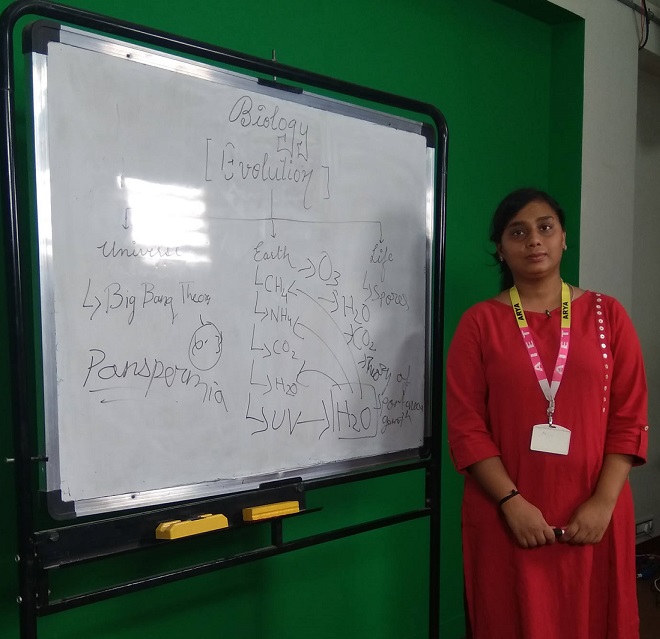 Biology
[Evolution]
Universe
↳ Big Bang Theory
Panspermia
Earth
↳ CH4
↳ NH4
↳ CO2
↳ H2O
↳ UV → H2O
→ O3
→ H2O
CO2
Life
↳ Spores
Theory of
ARYA
AIET
ARYA
AIET